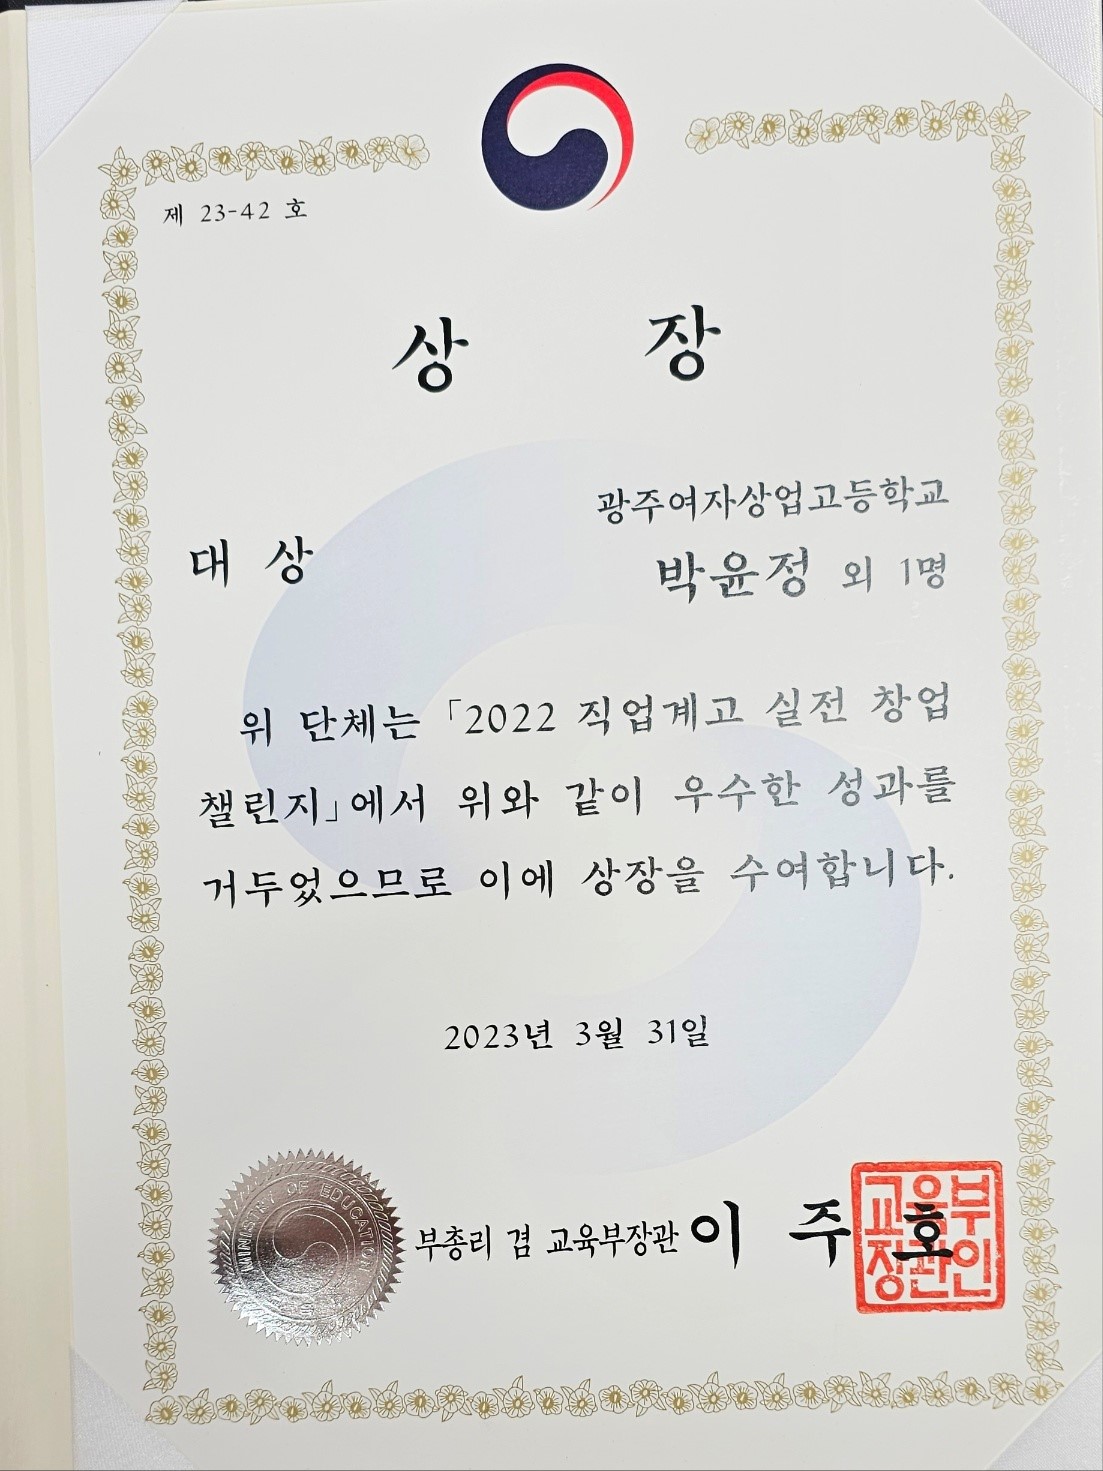 제 23-42 호
상 장
광주여자상업고등학교
대 상
박윤정 외 1명
위 단체는 「2022 직업계고 실전 창업
챌린지」에서 위와 같이 우수한 성과를
거두었으므로 이에 상장을 수여합니다.
2023년 3월 31일
MINISTRY OF EDUCATION
부총리 겸 교육부장관 이 주 호
교육부
장관인